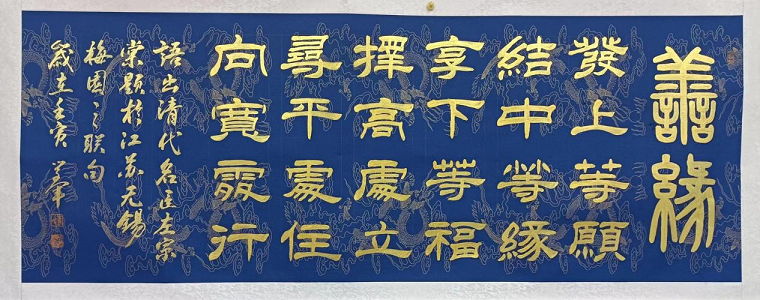 善緣
發上等願
結中等緣
享下等福
擇高處立
尋平處住
向寬處行
語出清代名臣左宗
棠題於江苏无锡
梅園之联句
歲在壬寅